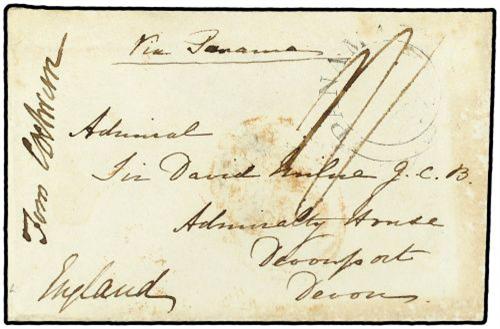 Via Panama
PANAMA
Admiral
Sir David Milne G.C.B.
Admiralty House
Devonport
Devon
England
Thos Cochrane